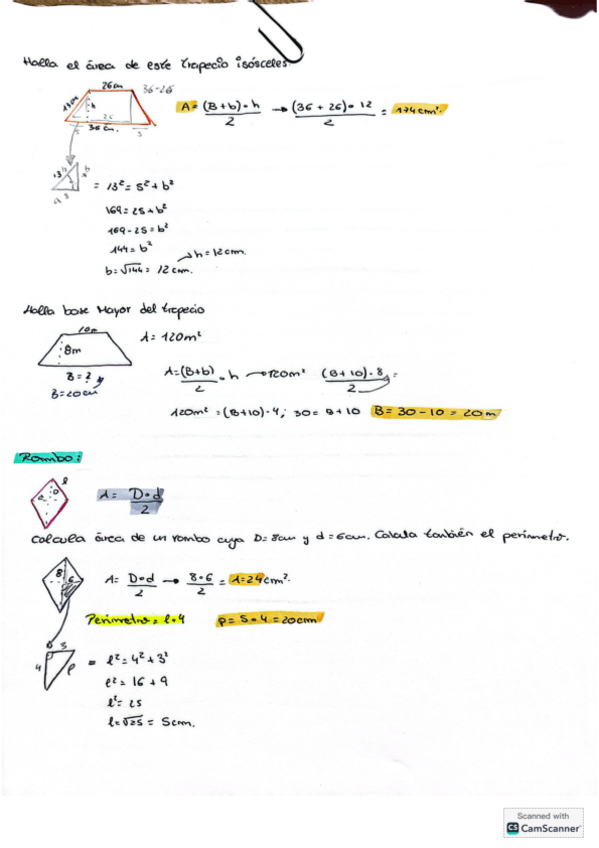 Halla el área de este trapecio isósceles.
26cm 36-26
13cm h
26
5 36 cm. 5
A = (B+b)·h / 2 → (36 + 26)·12 / 2 = 174cm².
13 b
5
= 13² = 5² + b²
169 = 25 + b²
169 - 25 = b²
144 = b²
→ h = 12cm.
b = √144 = 12 cm.
Halla base Mayor del trapecio
10m
8m
B = ?
B = 20cm
A = 120m²
A = (B+b) / 2 · h → 120m² (B + 10)·8 / 2 =
120m² = (B+10)·4; 30 = B + 10 B = 30 - 10 = 20m
Rombo:
l
D
A = D·d / 2
Calcula área de un rombo cuya D = 8cm y d = 6cm. Calcula también el perímetro.
8 6
A = D·d / 2 → 8·6 / 2 = A = 24cm².
Perimetro = l·4 p = 5·4 = 20cm
3
4 l
= l² = 4² + 3²
l² = 16 + 9
l² = 25
l = √25 = 5cm.
Scanned with
CS CamScanner